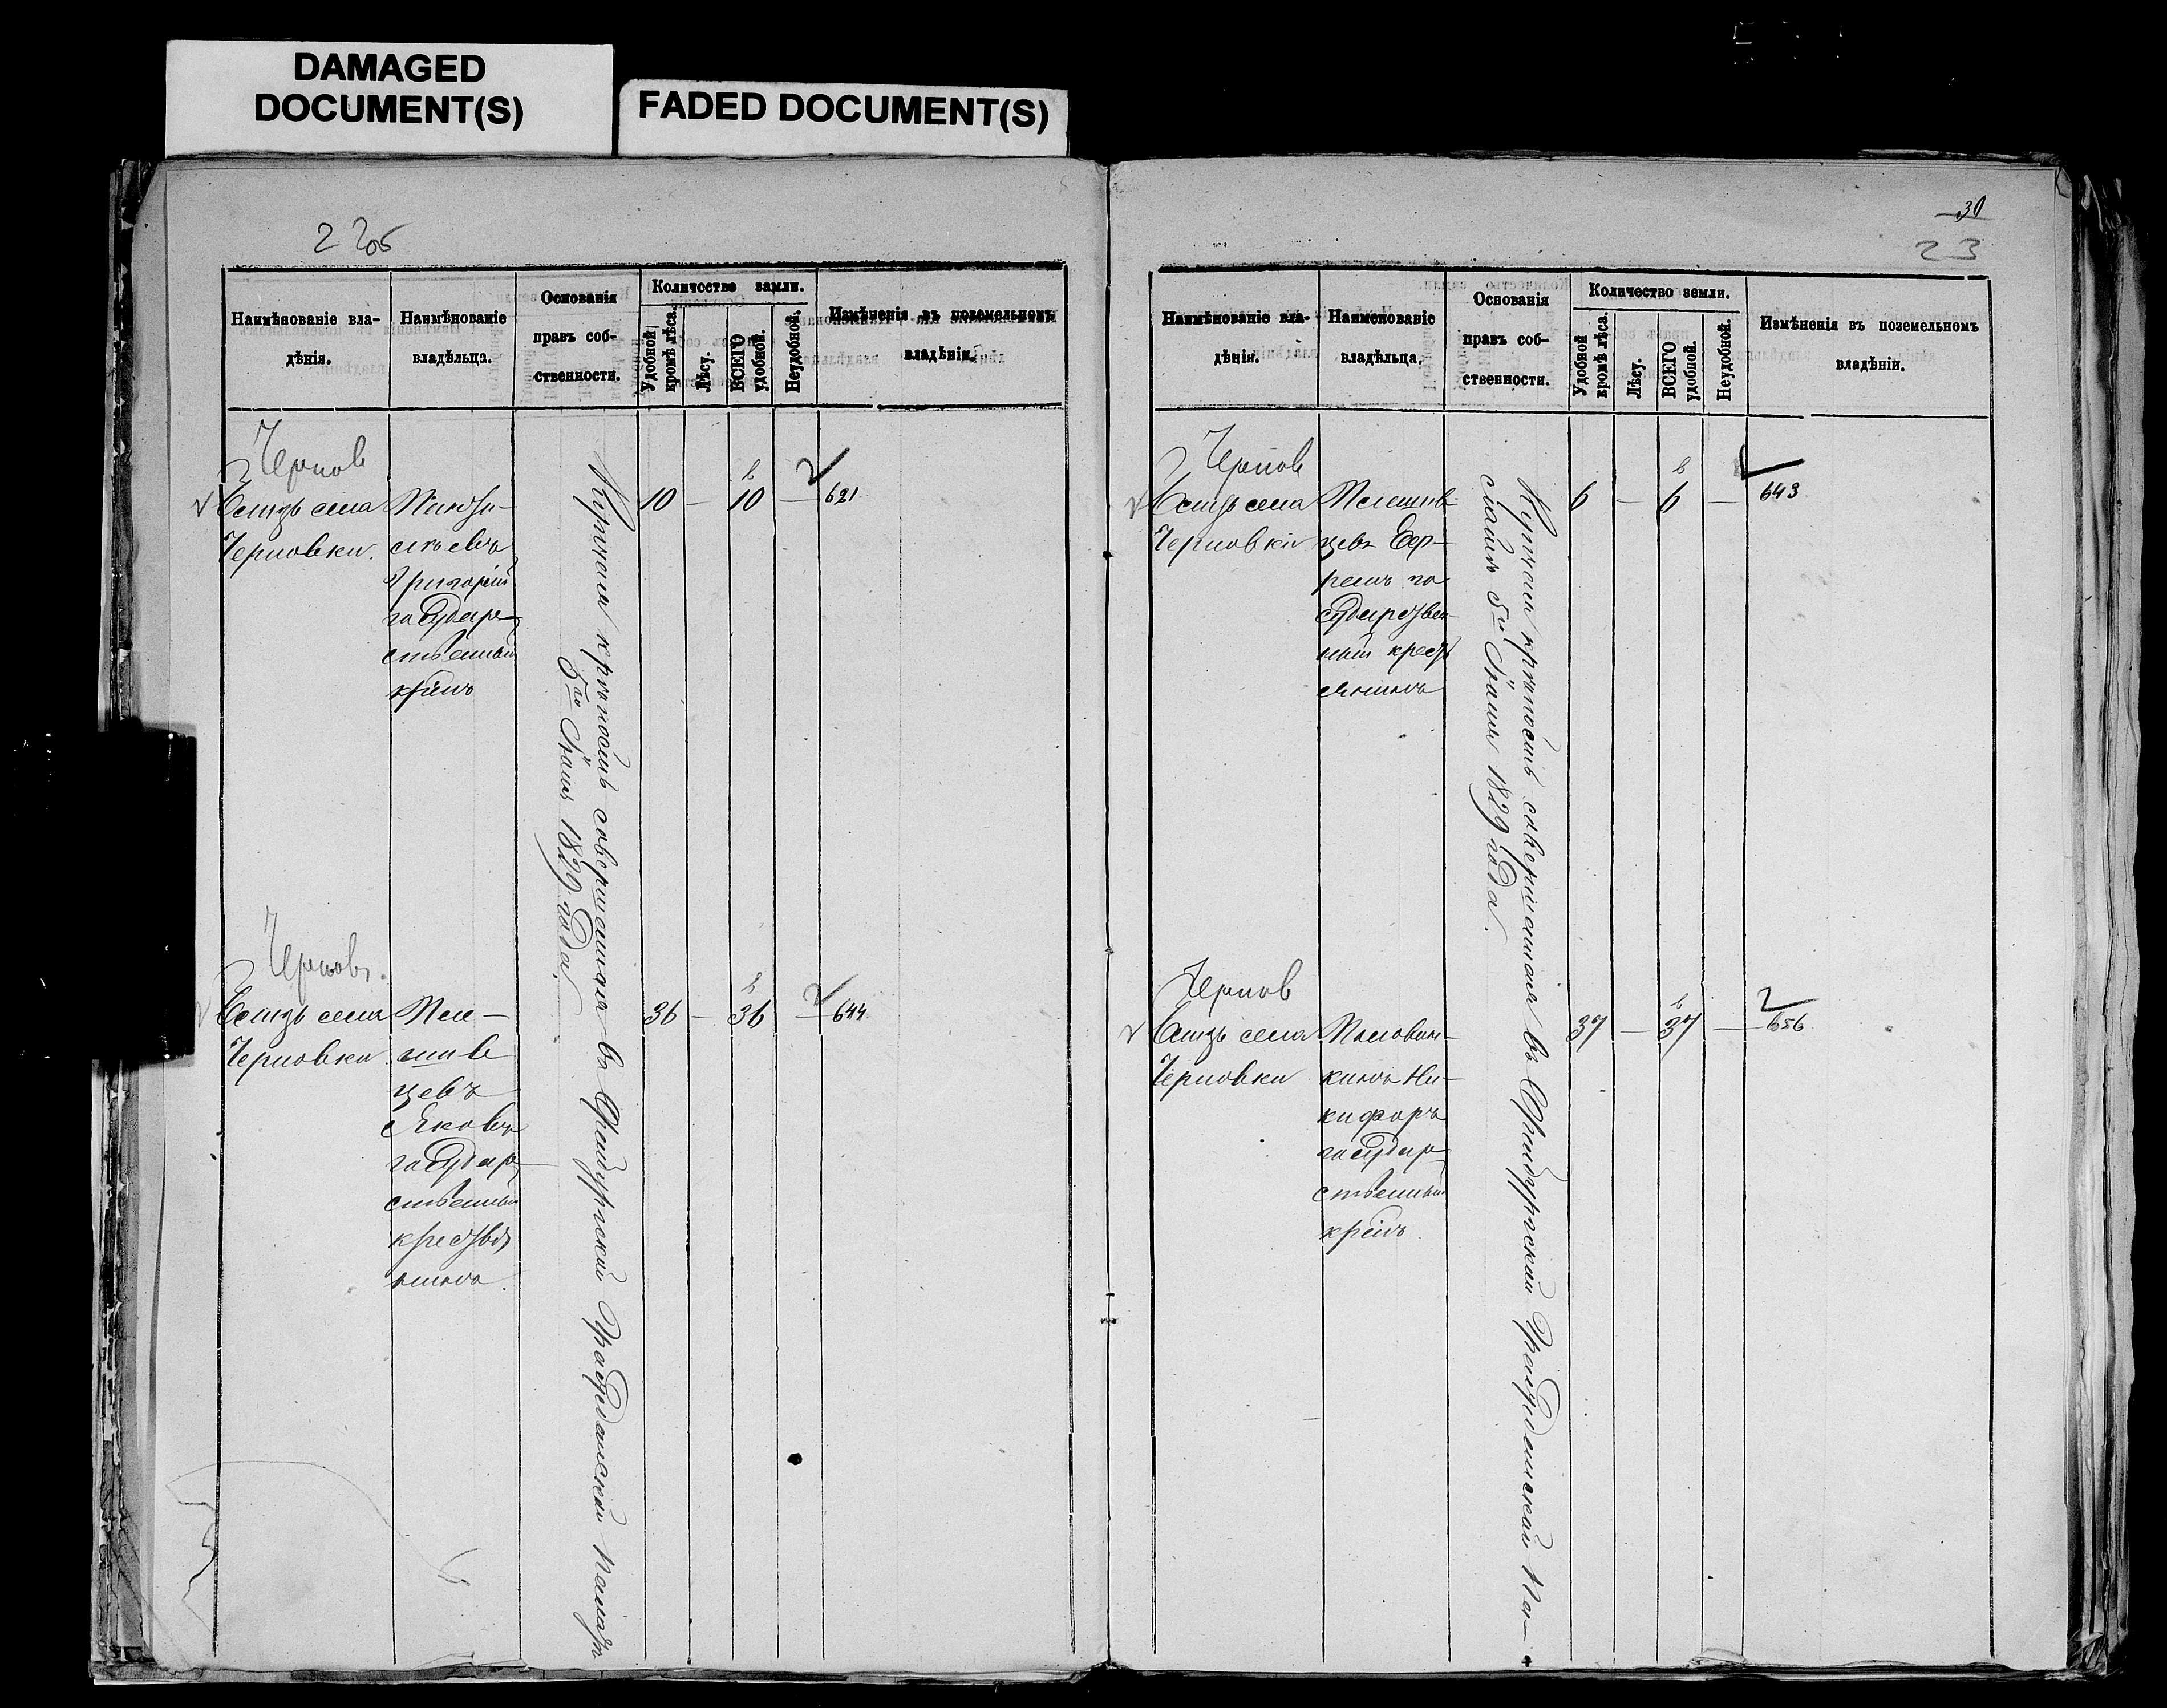 DAMAGED
DOCUMENT(S)
FADED DOCUMENT(S)
22об
Наимѣнованіе вла-
дѣнія.
Наимѣнованіе
владѣльца.
Основанія
правъ соб-
ственности.
Количество земли.
Удобной
кромѣ лѣса.
Лѣсу.
ВСЕГО
удобной.
Неудобной.
Измѣненія въ поземельномъ
владѣніи.
Чернов
села
Черновки.
Григорій
государ-
ственный
кр–инъ
Купчая крѣпость совершенная въ Оренбургской Гражданской Палатѣ
5го Іюня 1829 года.
10 — 10 — 621
Чернов.
села
Черновки.
цевъ
Яковъ
государ-
ственный
крестья
нинъ.
36 — 36 — 644
30
23
Наимѣнованіе вла-
дѣнія.
Наименованіе
владѣльца.
Основанія
правъ соб-
ственности.
Количество земли.
Удобной
кромѣ лѣса.
Лѣсу.
ВСЕГО
удобной.
Неудобной.
Измѣненія въ поземельномъ
владѣніи.
Чернов
села
Черновки
цевъ Еф-
ремъ го
сударствен-
ный кресть
янинъ
Купчая крѣпость совершенная въ Оренбургской Гражданской Па-
латѣ 5го Іюня 1829 года.
6 — 6 — 643
Чернов
села
Черновки
Ни-
кифоръ
государ-
ственный
кр–инъ.
37 — 37 — 656